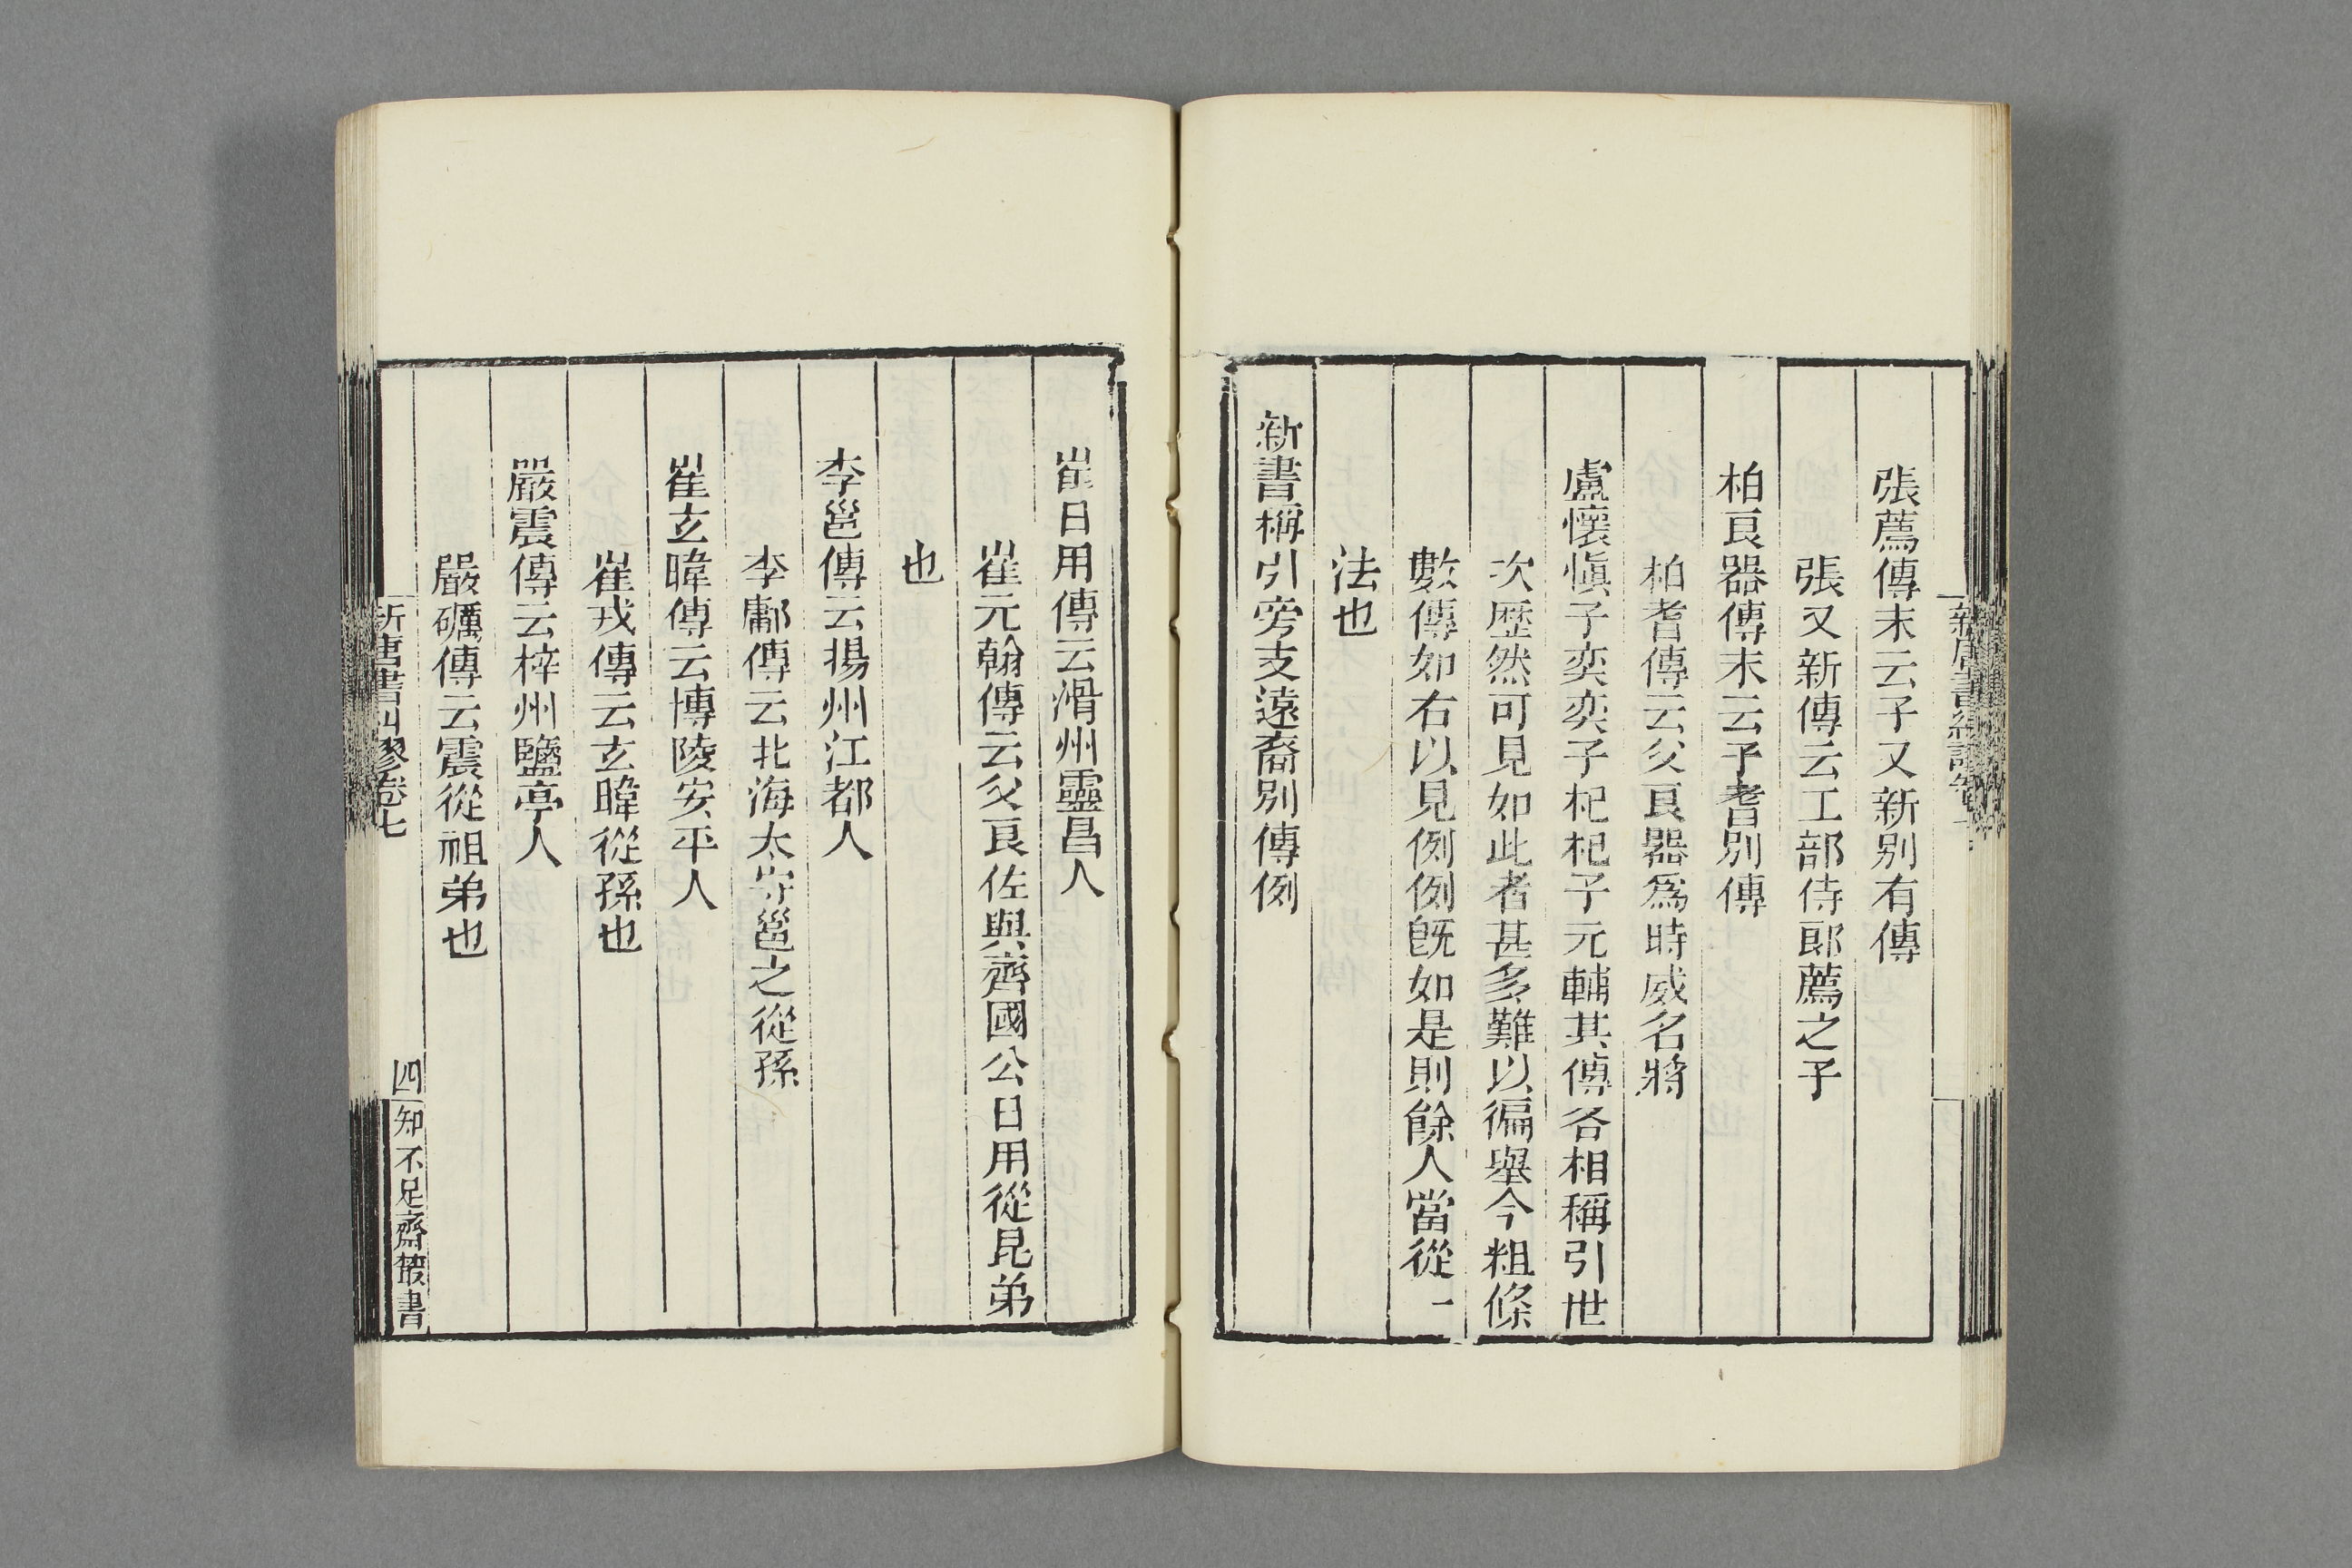 張薦傳末云子又新别有傳
張又新傳云工部侍郎薦之子
柏良器傳末云子耆别傳
柏耆傳云父良器爲時威名將
盧懷愼子奕奕子杞杞子元輔其傳各相稱引世
次歷然可見如此者甚多難以徧舉今粗條
數傳如右以見例例旣如是則餘人當從一
法也
新書稱引旁支遠裔别傳例
崔日用傳云滑州靈昌人
崔元翰傳云父良佐與齊國公日用從昆弟
也
李邕傳云揚州江都人
李鄘傳云北海太守邕之從孫
崔玄暐傳云博陵安平人
崔戎傳云玄暐從孫也
嚴震傳云梓州鹽亭人
嚴礪傳云震從祖弟也
新唐書糾謬卷七
四
知不足齋叢書